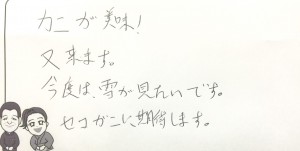 カニが美味!
又来ます。
今度は、雪が見たいです。
セコがに、期待します。